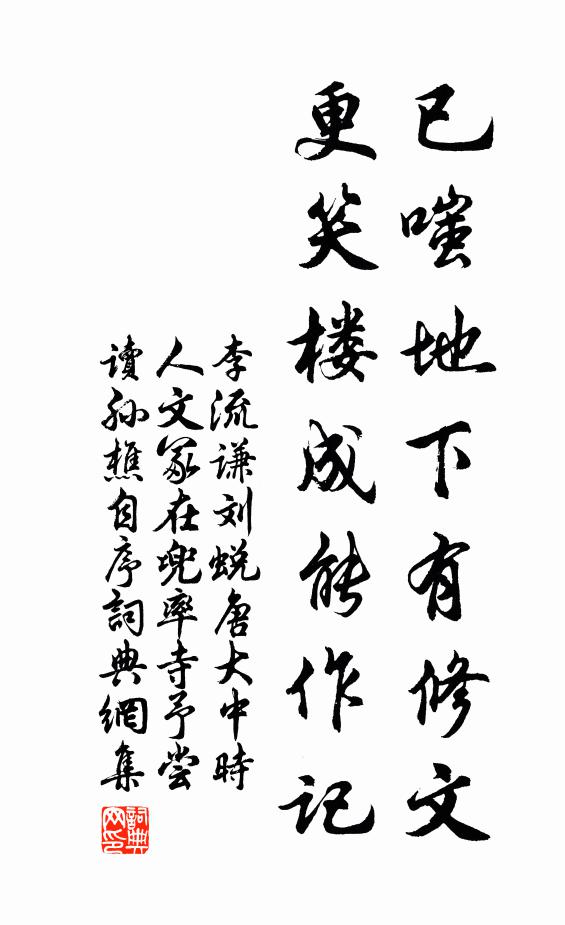 已嗤地下有修文
更笑楼成能作记
李流谦刘蜕唐大中时
人文冢在兜率寺予尝
讀孙樵自序詞典網集
詞典
网印